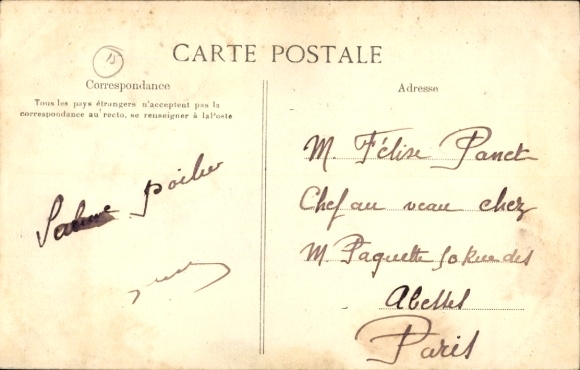 15
CARTE POSTALE
Correspondance
Tous les pays étrangers n'acceptent pas la
correspondance au recto, se renseigner à la Poste
Adresse
M. Félise Panet
Chef au veau chez
M. Paquette 50 Rue des
Abesses
Paris